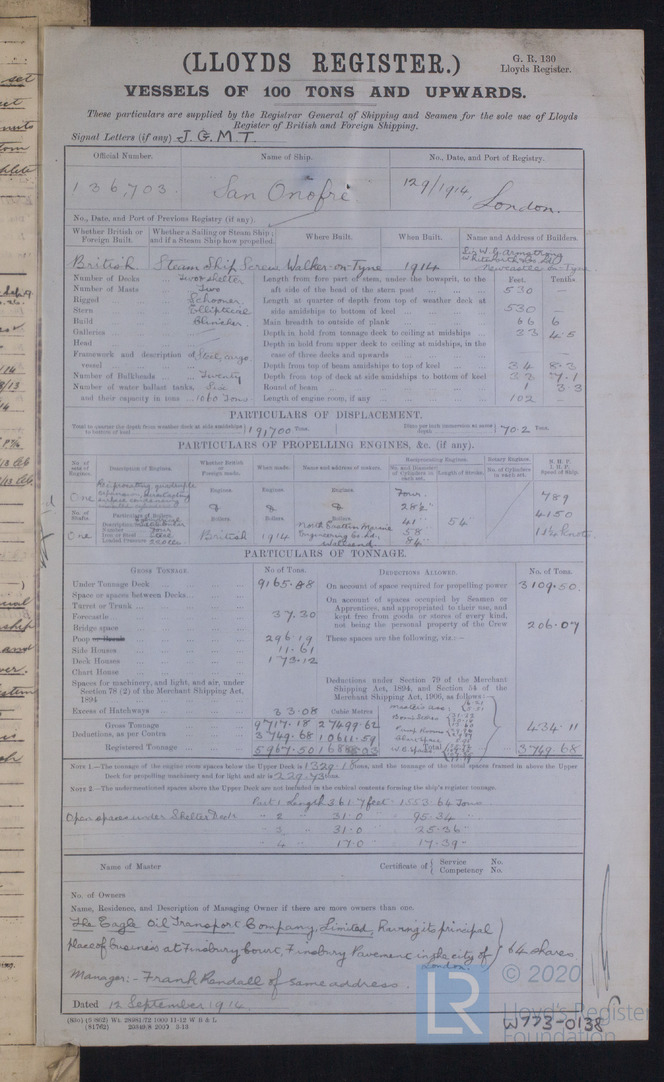 (LLOYDS REGISTER.)
G. R. 130
Lloyds Register.
VESSELS OF 100 TONS AND UPWARDS.
These particulars are supplied by the Registrar General of Shipping and Seamen for the sole use of Lloyds
Register of British and Foreign Shipping.
Signal Letters (if any) J. G. M. T.
Official Number. Name of Ship. No., Date, and Port of Registry.
136,703. San Onofre 129/1914, London.
No., Date, and Port of Previous Registry (if any).
Whether British or Foreign Built. Whether a Sailing or Steam Ship; and if a Steam Ship how propelled. Where Built. When Built. Name and Address of Builders.
British Steam Ship Screw Walker-on-Tyne 1914 Sir W. G. Armstrong Whitworth & Co. Ltd. Newcastle on Tyne
Number of Decks Two & shelter
Number of Masts Two
Rigged Schooner
Stern Elliptical
Build Clincher
Galleries —
Head —
Framework and description of vessel Steel, cargo
Number of Bulkheads Twenty
Number of water ballast tanks, and their capacity in tons 1060 Tons
Feet. Tenths
Length from fore part of stem, under the bowsprit, to the aft side of the head of the stern post 530 —
Length at quarter of depth from top of weather deck at side amidships to bottom of keel 530 —
Main breadth to outside of plank 66 6
Depth in hold from tonnage deck to ceiling at midships 33 45
Depth in hold from upper deck to ceiling at midships, in the case of three decks and upwards —
Depth from top of beam amidships to top of keel 34 8.3
Depth from top of deck at side amidships to bottom of keel 33 7.1
Round of beam 1 3.3
Length of engine room, if any 102
PARTICULARS OF DISPLACEMENT.
Total to quarter the depth from weather deck at side amidships to bottom of keel 19,700 Tons. Ditto per inch immersion at same depth 70.2 Tons.
PARTICULARS OF PROPELLING ENGINES, &c. (if any).
No. of sets of Engines. Description of Engines. Whether British or Foreign made. When made. Name and address of makers. Reciprocating Engines. No. and Diameter of Cylinders in each set. Length of Stroke. Rotary Engines. No. of Cylinders in each set. N. H. P. I. H. P. Speed of Ship.
One Engines Engines Engines Four. 789
No. of Shafts. Particulars of Boilers. Boilers Boilers Boilers 41" 54" 4150
One British 1914 North Eastern Marine Engineering Co. Ld. Wallsend 58" 84" 11¼ knots
PARTICULARS OF TONNAGE.
GROSS TONNAGE. No. of Tons. DEDUCTIONS ALLOWED. No. of Tons.
Under Tonnage Deck 9165.88
Space or spaces between Decks
Turret or Trunk
Forecastle 37.30
Bridge space
Poop or Break 296.19
Side Houses 11.61
Deck Houses 173.12
Chart House
Spaces for machinery, and light, and air, under Section 78 (2) of the Merchant Shipping Act, 1894
Excess of Hatchways 33.08 Cubic Metres
Gross Tonnage 9717.18 27499.62
Deductions, as per Contra 3749.68 10611.59
Registered Tonnage 5967.50 16888.03
On account of space required for propelling power 3109.50
On account of spaces occupied by Seamen or Apprentices, and appropriated to their use, and kept free from goods or stores of every kind, not being the personal property of the Crew 206.07
These spaces are the following, viz:—
Deductions under Section 79 of the Merchant Shipping Act, 1894, and Section 54 of the Merchant Shipping Act, 1906, as follows:—
434.11
Total 3749.68
NOTE 1.—The tonnage of the engine room spaces below the Upper Deck is 1329.18 tons, and the tonnage of the total spaces framed in above the Upper
Deck for propelling machinery and for light and air is 229.73 tons.
NOTE 2.—The undermentioned spaces above the Upper Deck are not included in the cubical contents forming the ship's register tonnage.
Part 1 Length 361.7 feet 1553.64 Tons
Open spaces under Shelter Deck " 2 " 31.0 " 95.34 "
" 3 " 31.0 " 25.36 "
" 4 " 17.0 " 17.39 "
Name of Master Certificate of { Service No. Competency No.
No. of Owners
Name, Residence, and Description of Managing Owner if there are more owners than one.
The Eagle Oil Transport Company, Limited, having its principal
place of business at Finsbury Court, Finsbury Pavement in the city of London. } 64 shares
Manager:- Frank Kendall of same address.
Dated 12 September 1914
© 2020
LR
Lloyd's Register
Foundation
W773-0138